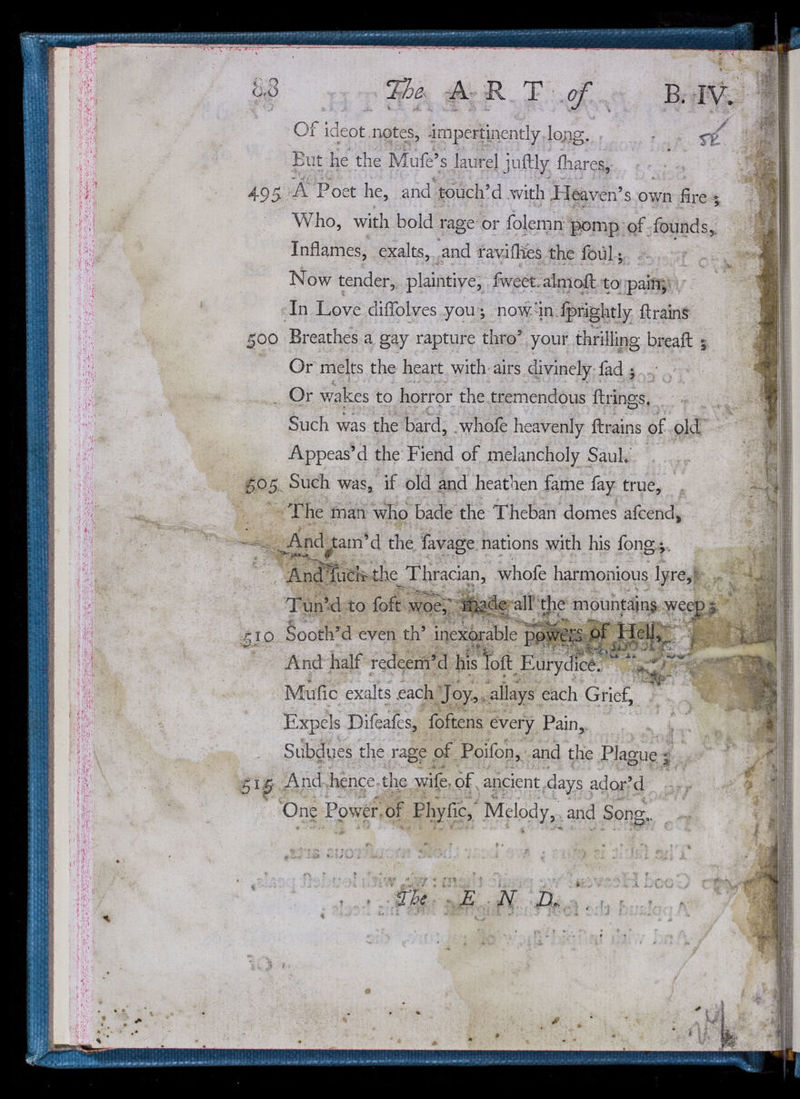 88 The ART of B. IV.
Of ideot notes, impertinently long.
But he the Muſe's laurel juſtly ſhares,
495 A Poet he, and touch'd with Heaven's own fire;
Who, with bold rage or ſolemn pomp of ſounds,
Inflames, exalts, and raviſhes the ſoul;
Now tender, plaintive, ſweet almoſt to pain,
In Love diſſolves you; now in ſprightly ſtrains
500 Breathes a gay rapture thro' your thrilling breaſt;
Or melts the heart with airs divinely ſad;
Or wakes to horror the tremendous ſtrings.
Such was the bard, whoſe heavenly ſtrains of old
Appeas'd the Fiend of melancholy Saul.
505 Such was, if old and heathen fame ſay true,
The man who bade the Theban domes aſcend,
And tam'd the ſavage nations with his ſong;
And ſuch the Thracian, whoſe harmonious lyre,
Tun'd to ſoft woe, made all the mountains weep;
510 Sooth'd even th' inexorable powers of Hell,
And half redeem'd his loſt Eurydice.
Muſic exalts each Joy, allays each Grief,
Expels Diſeaſes, ſoftens every Pain,
Subdues the rage of Poiſon, and the Plague;
515 And hence the wiſe of ancient days ador'd
One Power of Phyſic, Melody, and Song.
The END.